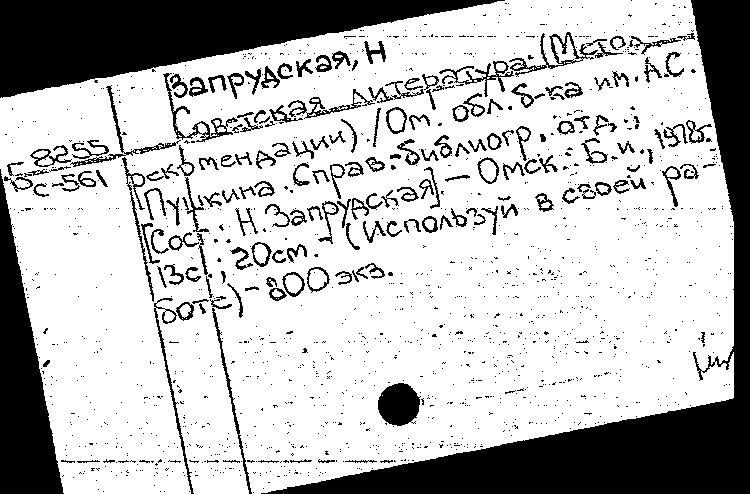 Запрудская, Н
Советская литература: (Метод.
Г 8255
рекомендации) / Ом. обл. б-ка им. А.С.
Бс-561
Пушкина. Справ.-библиогр. отд.;
[Сост.: Н. Запрудская]. - Омск: Б.и., 1978г.
13с.; 20см. - (Используй в своей ра-
боте) - 800 экз.